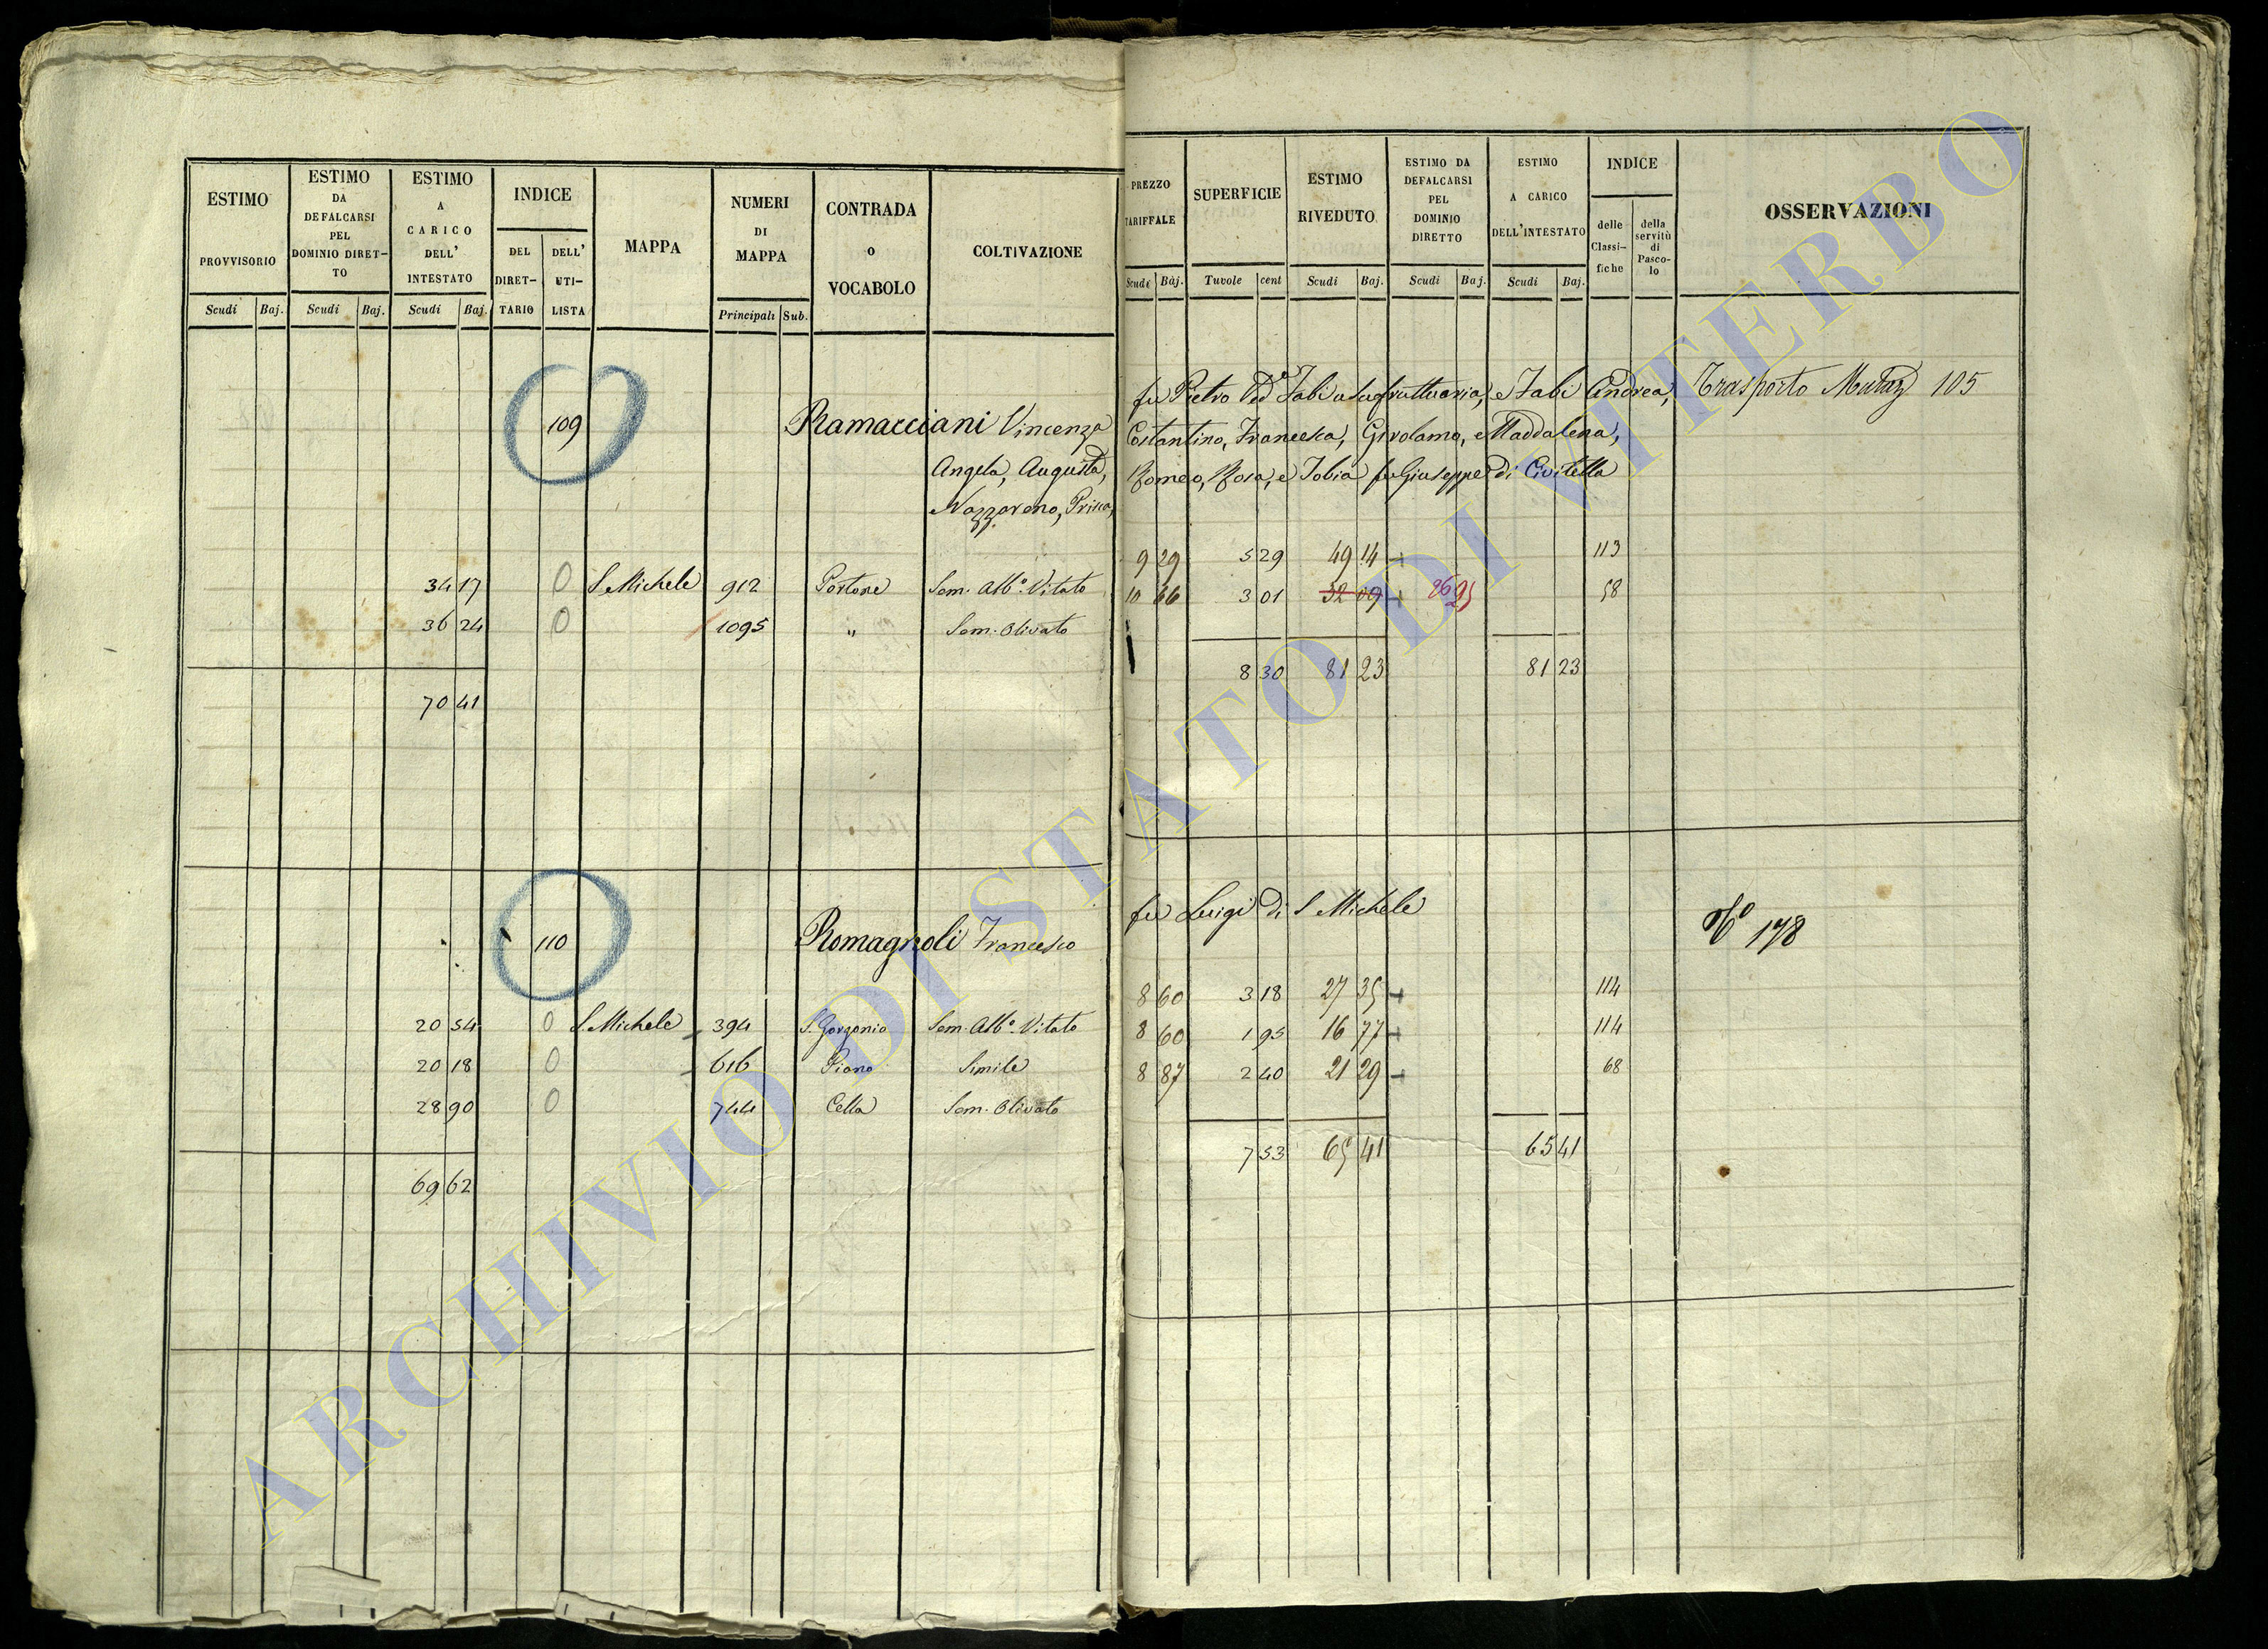 ESTIMO PROVVISORIO
ESTIMO DA DEFALCARSI PEL DOMINIO DIRET-TO
ESTIMO A CARICO DELL' INTESTATO
INDICE
DEL DIRET-TARIO
DELL' UTI-LISTA
MAPPA
NUMERI DI MAPPA
CONTRADA o VOCABOLO
COLTIVAZIONE
Scudi Baj. Scudi Baj. Scudi Baj. Principali Sub.
PREZZO TARIFFALE
SUPERFICIE
ESTIMO RIVEDUTO
ESTIMO DA DEFALCARSI PEL DOMINIO DIRETTO
ESTIMO A CARICO DELL'INTESTATO
INDICE
delle Classi-fiche
della servitù di Pasco-lo
OSSERVAZIONI
Scudi Baj. Tavole cent Scudi Baj. Scudi Baj. Scudi Baj.
109 Ramacciani Vincenza fu Pietro Ved Fabi usufruttuaria, e Fabi Andrea, Trasporto 105
Angela, Augusta, Costantino, Francesca, Girolamo, e Maddalena,
Nazzareno, Prisca, Romeo, Rosa, e Tobia fu Giuseppe di Civitella
34 17 0 S Michele 912 Portone Sem. Alb.o Vitato 9 29 5 29 49 14 113
36 24 0 1095 " Sem. Olivato 10 66 3 01 32 09 26 95 58
70 41 8 30 81 23 81 23
110 Romagnoli Francesco fu Luigi di S Michele No 178
20 54 0 S Michele 394 S. Gorgonio Sem. Alb.o Vitato 8 60 3 18 27 35 114
20 18 0 616 Piano Simile 8 60 1 95 16 77 114
28 90 0 744 Cella Sem. Olivato 8 87 2 40 21 29 68
69 62 7 53 65 41 65 41
ARCHIVIO DI STATO DI VITERBO